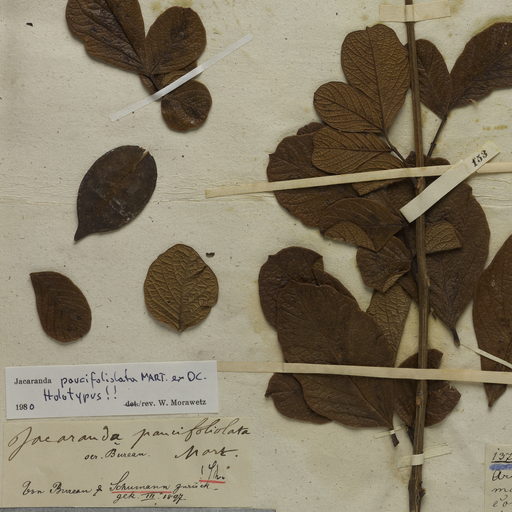 153
Jacaranda paucifoliolata MART. ex DC.
Holotypus!!
1980 det./rev. W. Morawetz
Jacaranda paucifoliolata
scr. Bureau. Mart.
Von Bureau & Schumann zurück.
gek. III. 1897
137